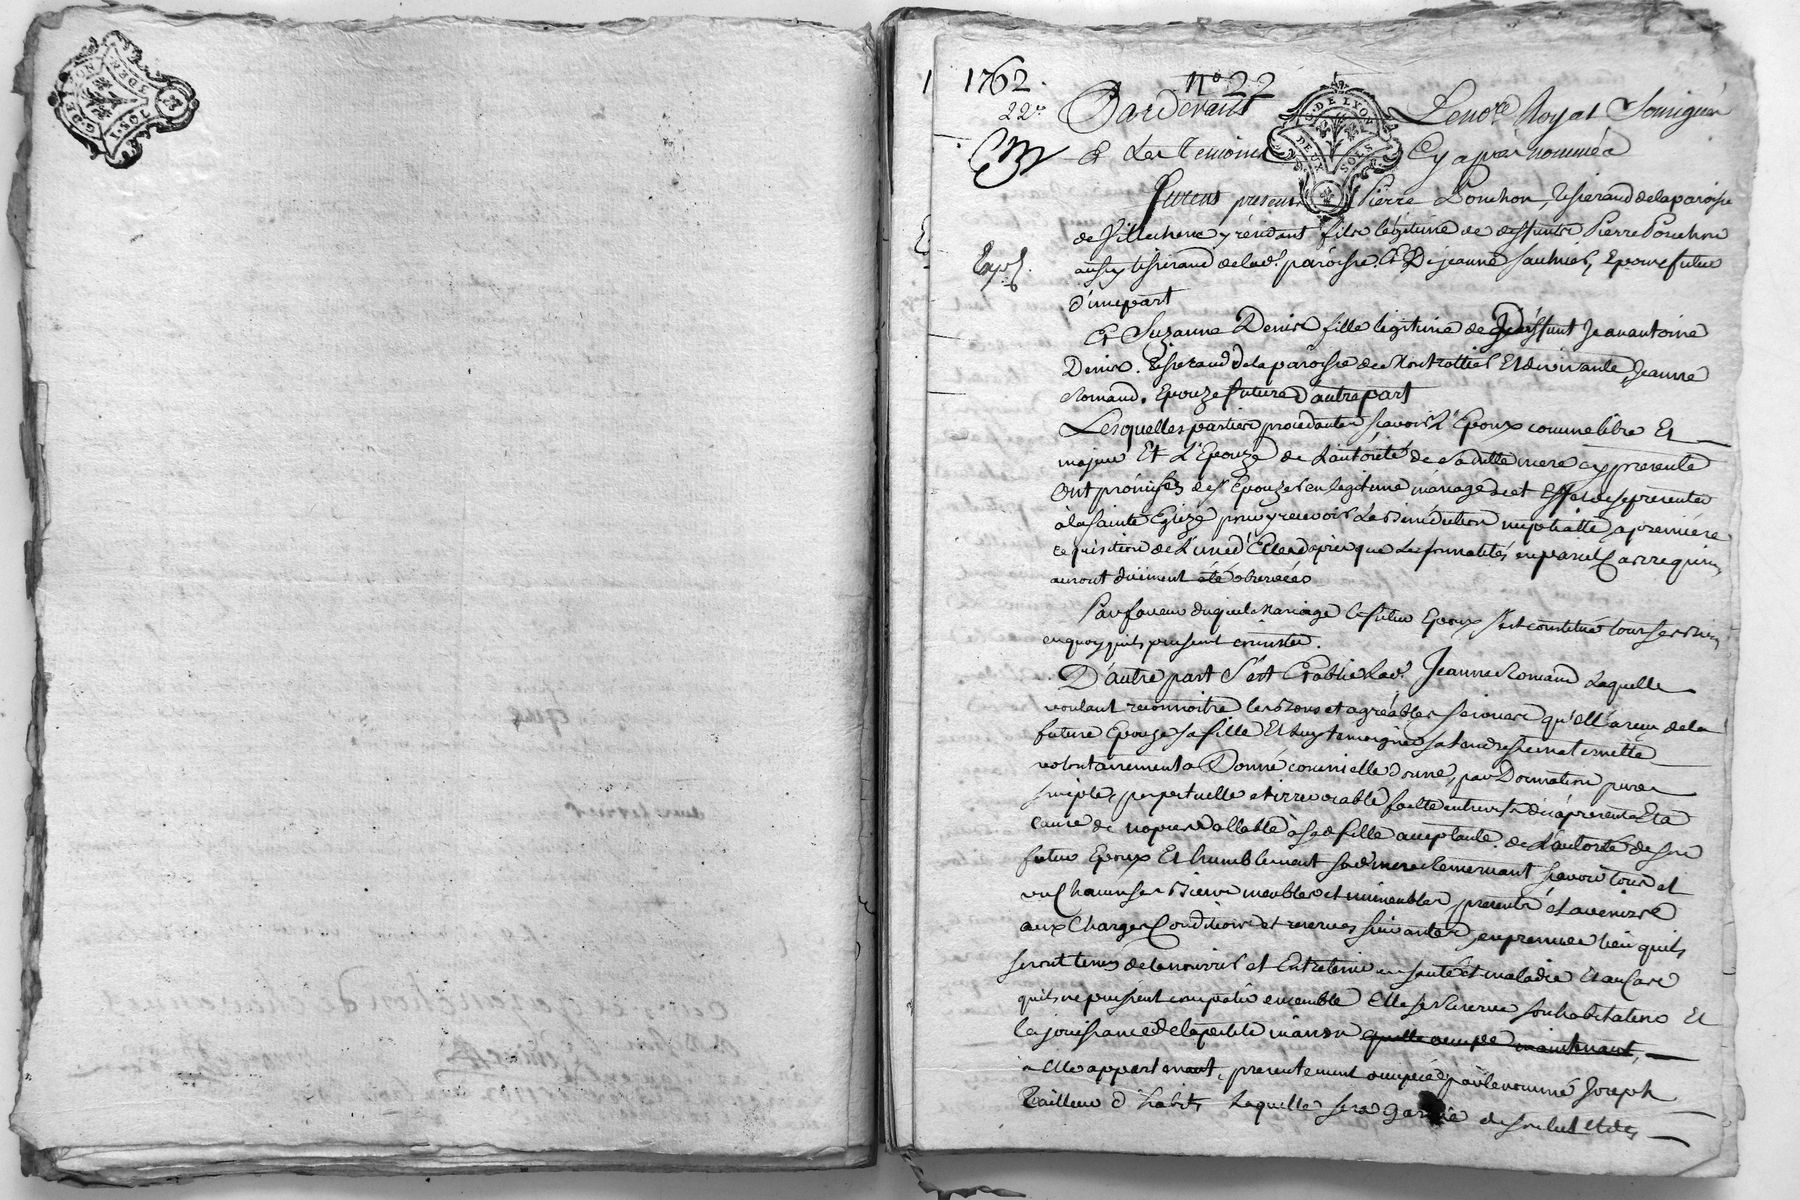 G. DE LYON
DEUX SOLS
1762. n.° 22
22.e
Pardevant Le no.re Royal Soussigné
& Les Temoins Cy apres nommés
Furent presents Pierre Ponchon, tisserand de la paroisse
de Villechene y résidant fils légitime de deffunt Pierre Ponchon
aussy tisserand de lad. paroisse, Et De jeanne Saulnier, Epoux futur
d'une part
Exp.
Et Suzanne Denis fille légitime de deffunt Jean antoine
Denis. Tisserand de la paroisse de Montrottier Et de vivante Jeanne
Romand. Epouze future d'autre part
Lesquelles parties procedantes sçavoir L'Epoux comme libre Et
majeur Et L'Epouze de L'autorité de sa ditte mere cy presente
Ont promis de s'Epouzer en legitime mariage à cet Effet de se presenter
à la Sainte Eglize pour y recevoir La Bénédiction nuptialle a premiere
requisition de L'une d'Elles après que Les formalités en pareil Cas requises
auront düement été observées
En faveur duquel Mariage le futur Epoux s'est constitué tous ses biens
en quoy qu'ils puissent consister.
D'autre part S'est Etablie Lad. Jeanne Romand Laquelle
voulant reconnoitre les bons et agréables services qu'elle a reçu de la
future Epouze sa fille Et luy temoigner sa tendresse maternelle
volontairement a Donné comme elle donne, par Donnation pure
simple, perpetuelle et irrevocable faitte entre vifs à présent Et à
cause de nopces vallable à sad. fille acceptante de L'autorité de son
futur Epoux Et humblement sad. mere remerciant sçavoir tous et
un Chacun ses Biens meubles et immeubles, presents et avenirs
aux Charges Conditions et reserves suivantes, en premier lieu qu'ils
seront tenus de la nourrir et Entretenir en santé et maladie Et au Cas
qu'ils ne puissent compatir ensemble Elle se Reserve son habitation Et
la jouissance de la petite maison quelle occupe maintenant,
à elle appartenant, presentement occupée par le nommé Joseph
Tailleur d'habits Laquelle sera garnie de son lit et des